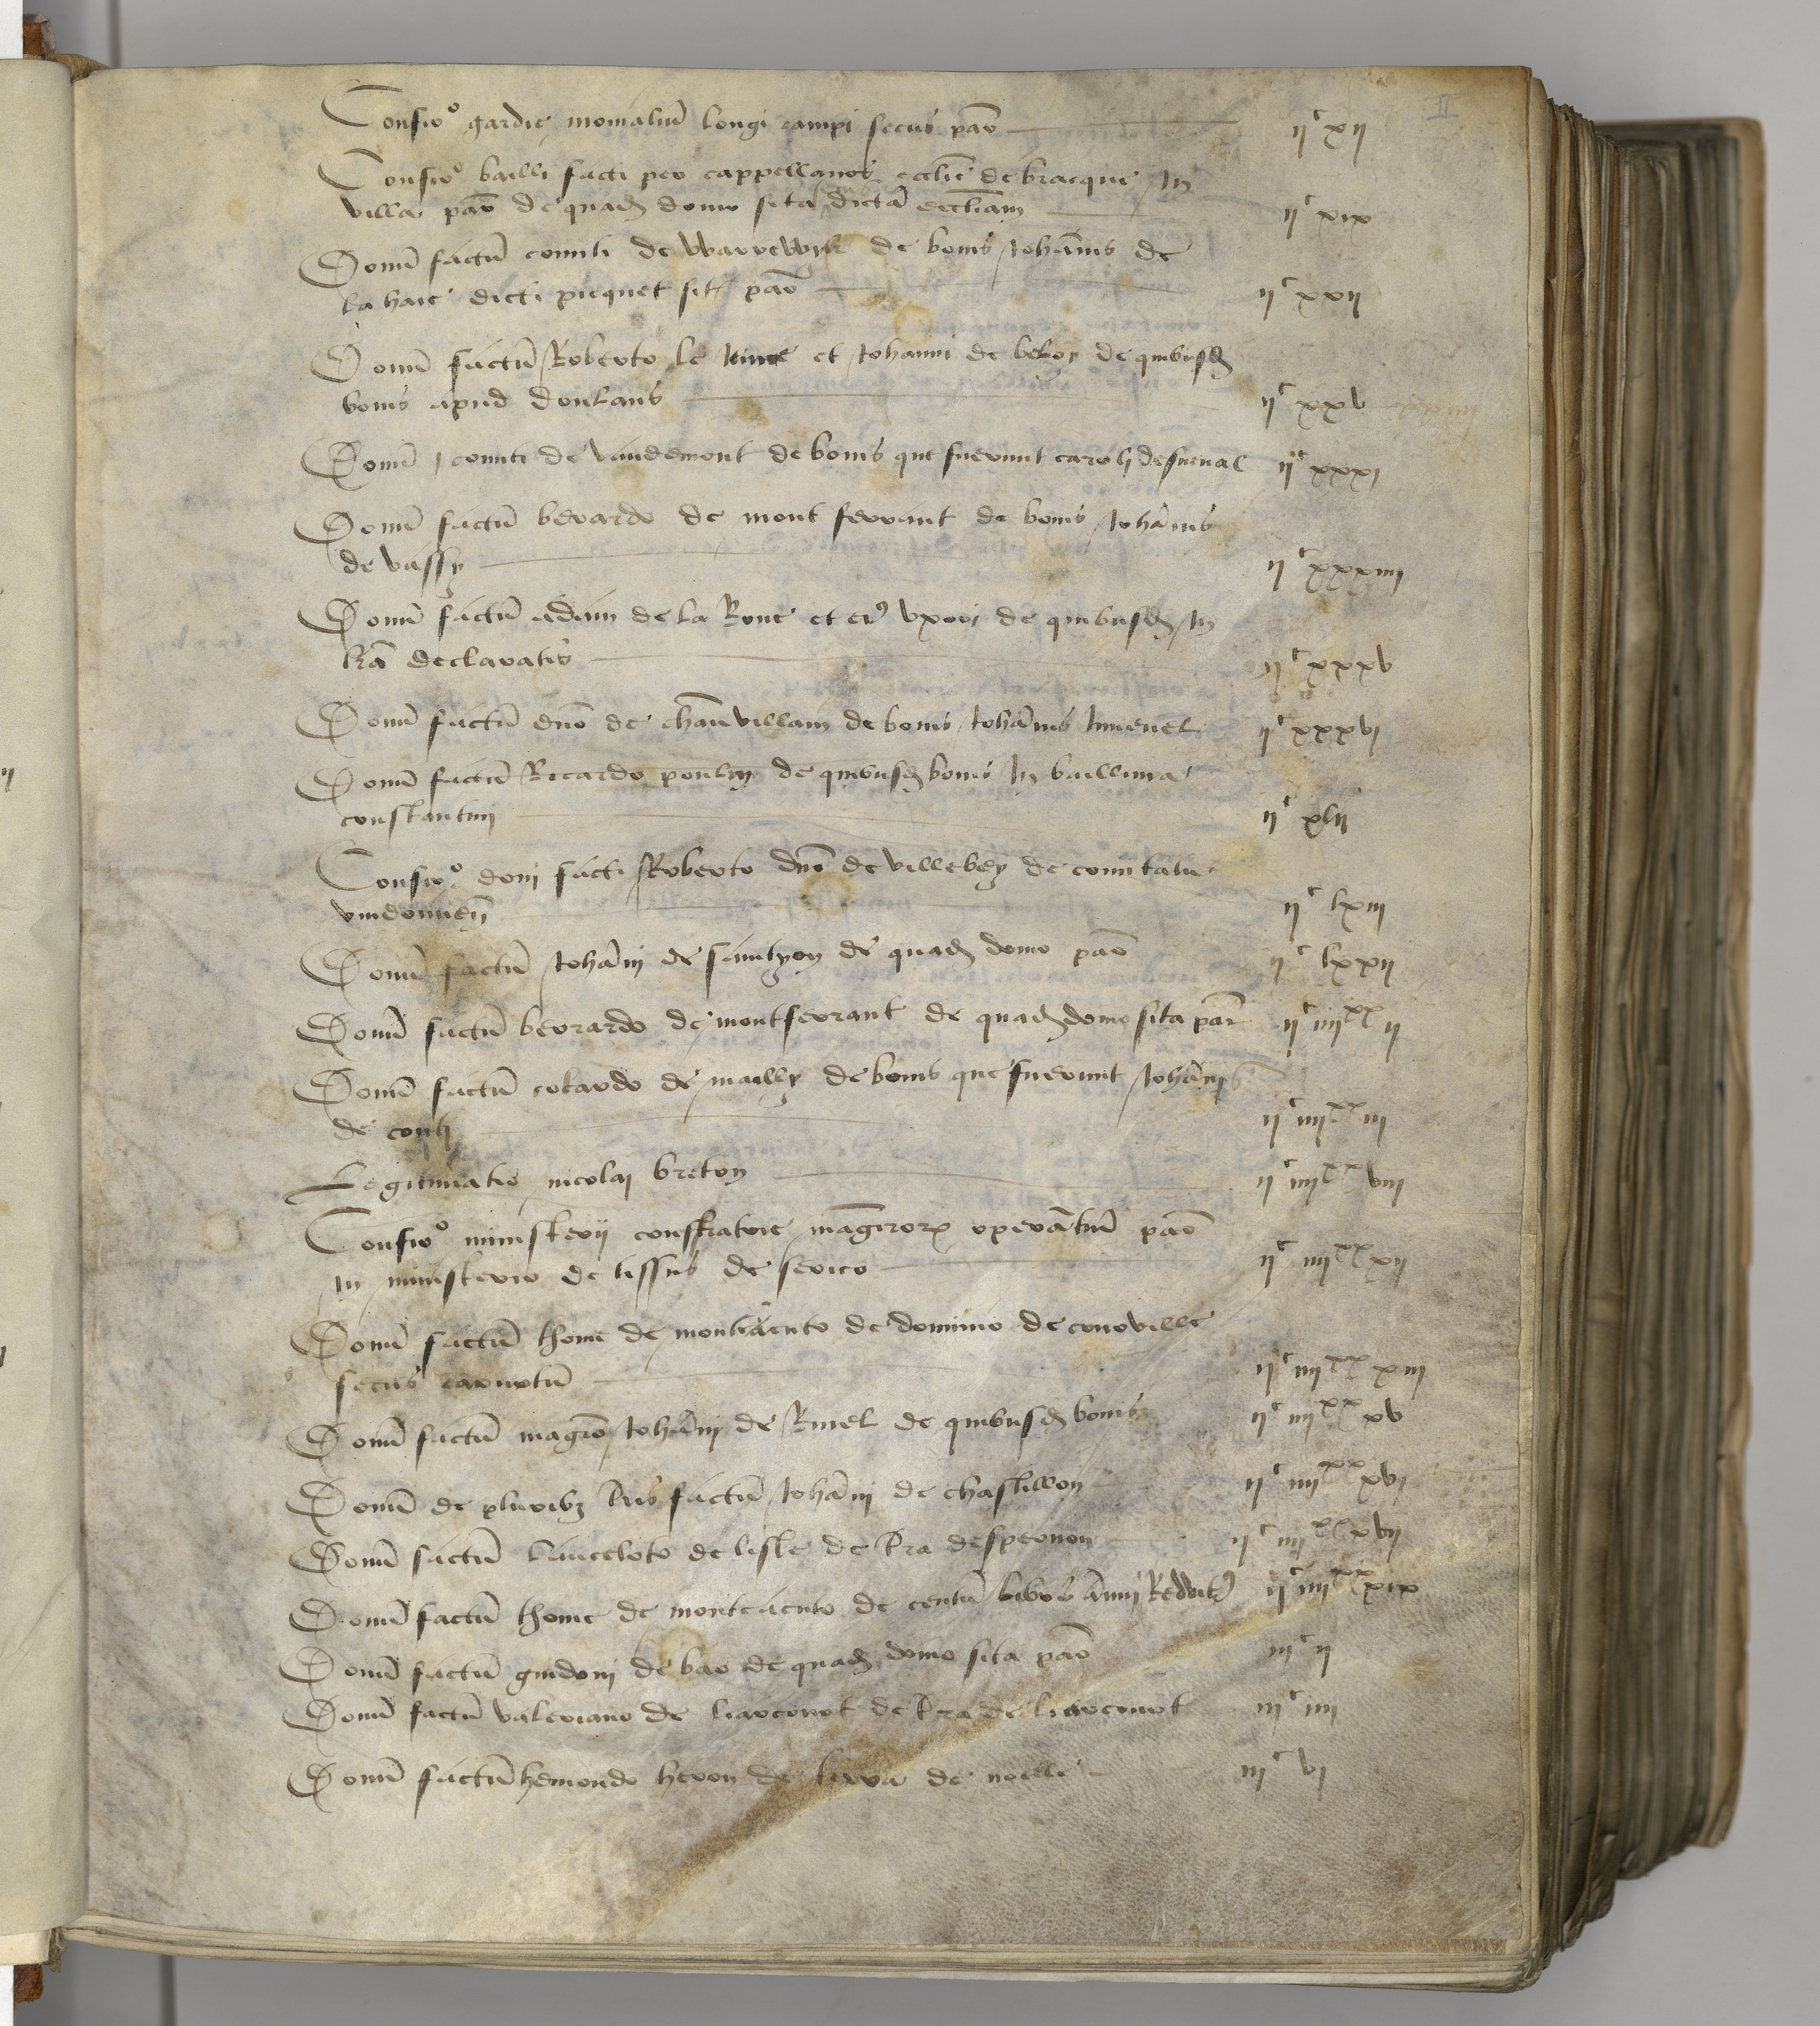 II
Confiro gardie monialiu longi campi secus par ii c xii
Confiro bailli facti per cappellanos ecclie de bracque In
villa par de quad domo sita dicta ecctiam ii c xix
Donu factu comiti de Warrewyk de bonis Johanis de
la haie dicti picquet sit par ii c xxii
Donu factu Roberto le et Johanni de beloy de quibusd
bonis apud doullans ii c xxv
Donu comiti de vaudemont de bonis que fuerunt caroli desneval ii c xxxi
Donu factu berardo de mont ferrant de bonis Johanis
de vassy ii c xxxiiii
Donu factu adam de la Roue et ei uxori de quibusd In
lra declaratis ii c xxxv
Donu factu dno de chauvillam de bonis Johanis Juvenel ii c xxxvi
Donu factu Ricardo poulin de quibusd bonis In baillivia
constantini ii c xlii
Confiro doni facti Roberto dno de villeby de comitatu
vindonien ii c lxiii
Donu factu Johani de saintyon de quad domo par ii c lxxii
Donu factu berrardo de montferrant de quad domo sita par ii c iiii xx ii
Donu factu colardo de mailly de bonis que fuerunt Johanis
de conti ii c iiii xx iii
Legitimatio nicolai breton ii c iiii xx viii
Confiro ministerij confratrie magrorum operatiu par
In ministerio de tissus de serico ii c iiii xx xii
Donu factu thome de monteacuto de dominio de
secus carnotu ii c iiii xx xiii
Donu factu magro Johani de Rinel de quibusd bonis ii c iiii xx xv
Donu de pluribz tris factu Johani de chastillon ii c iiii xx xvi
Donu factu lanceloto de lisle de tra despernon ii c iiii xx xvii
Donu factu thome de monteacuto de centu libris Annui Reddit ii c iiii xx xix
Donu factu guidoni de bar de quad domo sita par iii c ii
Donu factu valeriano de liarcourt de tra de liarcourt iii c iiii
Donu factu hemondo heron de terra de iii c vi